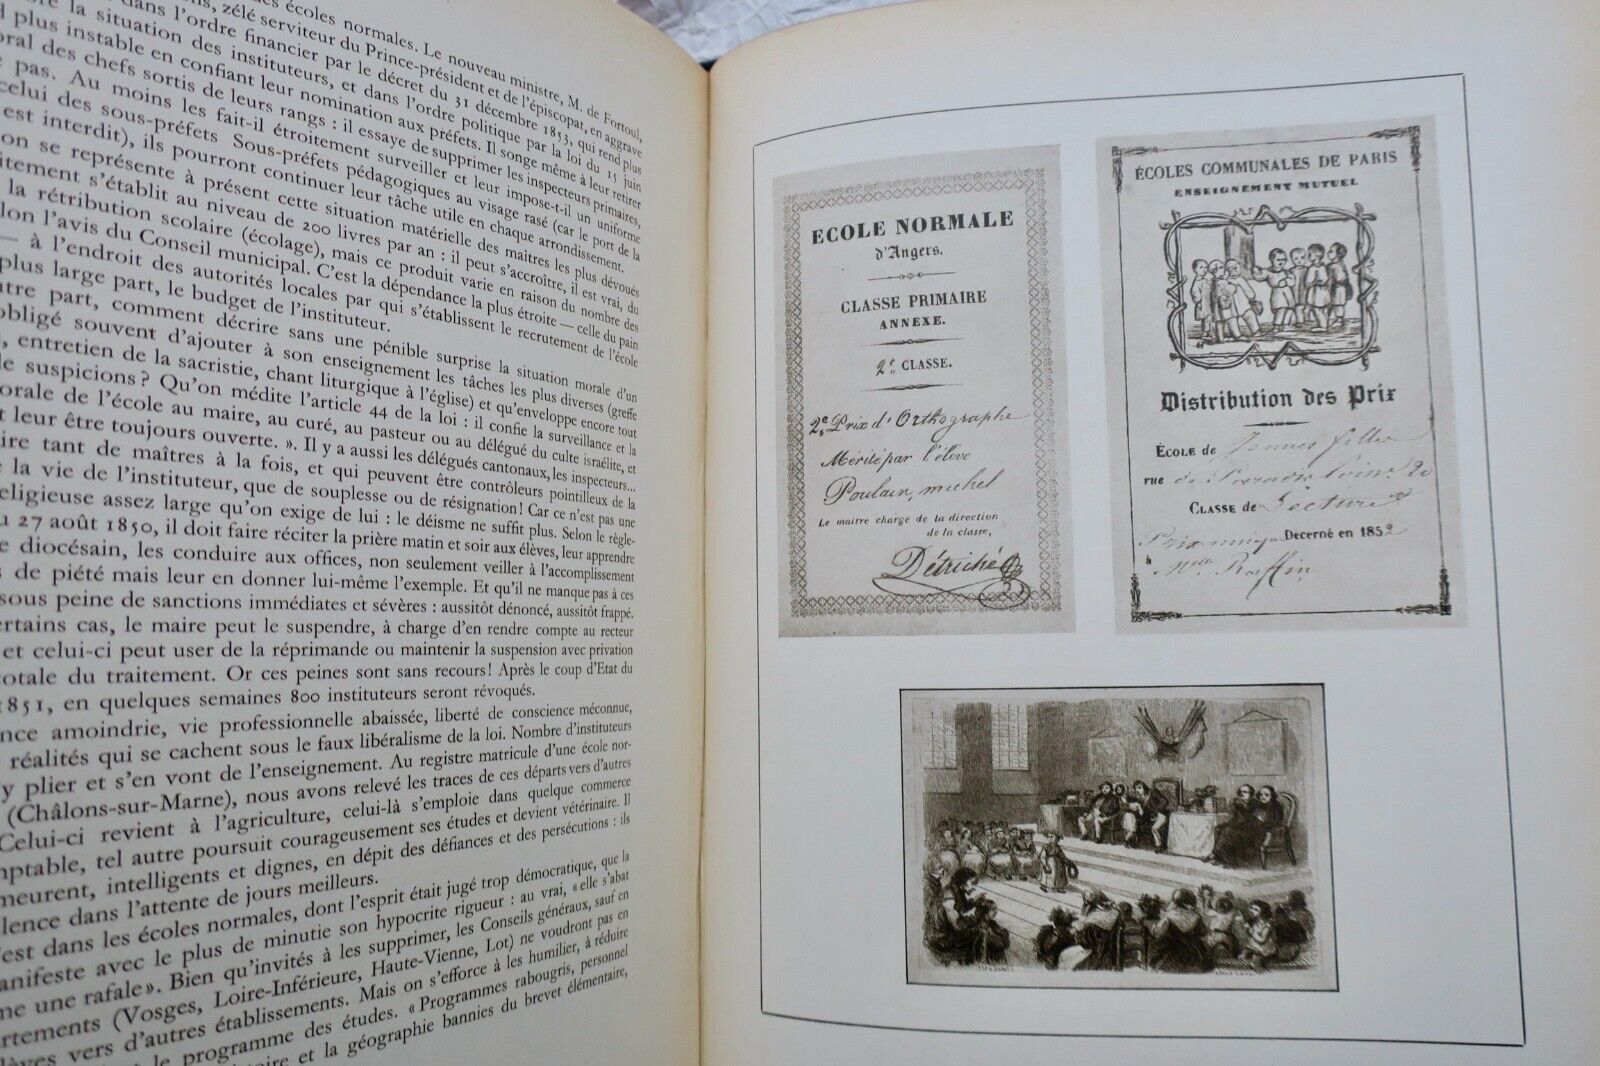 des écoles normales. Le nouveau ministre, M. de Fortoul,
zélé serviteur du Prince-président et de l'épiscopat, en aggrave
la situation des instituteurs, et dans l'ordre politique par la loi du 15 juin
dans l'ordre financier par le décret du 31 décembre 1853, qui rend plus
plus instable en confiant leur nomination aux préfets. Il songe même à leur retirer
des chefs sortis de leurs rangs : il essaye de supprimer les inspecteurs primaires,
pas. Au moins les fait-il étroitement surveiller et leur impose-t-il un uniforme
celui des sous-préfets Sous-préfets pédagogiques au visage rasé (car le port de la
est interdit), ils pourront continuer leur tâche utile en chaque arrondissement.
on se représente à présent cette situation matérielle des maitres les plus dévoués
s'établit au niveau de 200 livres par an : il peut s'accroître, il est vrai, du
la rétribution scolaire (écolage), mais ce produit varie en raison du nombre des
l'avis du Conseil municipal. C'est la dépendance la plus étroite — celle du pain
— à l'endroit des autorités locales par qui s'établissent le recrutement de l'école
plus large part, le budget de l'instituteur.
part, comment décrire sans une pénible surprise la situation morale d'un
obligé souvent d'ajouter à son enseignement les tâches les plus diverses (greffe
entretien de la sacristie, chant liturgique à l'église) et qu'enveloppe encore tout
suspicions? Qu'on médite l'article 44 de la loi : il confie la surveillance et la
morale de l'école au maire, au curé, au pasteur ou au délégué du culte israélite, et
leur être toujours ouverte. ». Il y a aussi les délégués cantonaux, les inspecteurs...
tant de maîtres à la fois, et qui peuvent être contrôleurs pointilleux de la
la vie de l'instituteur, que de souplesse ou de résignation! Car ce n'est pas une
religieuse assez large qu'on exige de lui : le déisme ne suffit plus. Selon le règle-
27 août 1850, il doit faire réciter la prière matin et soir aux élèves, leur apprendre
diocésain, les conduire aux offices, non seulement veiller à l'accomplissement
de piété mais leur en donner lui-même l'exemple. Et qu'il ne manque pas à ces
sous peine de sanctions immédiates et sévères : aussitôt dénoncé, aussitôt frappé.
certains cas, le maire peut le suspendre, à charge d'en rendre compte au recteur
et celui-ci peut user de la réprimande ou maintenir la suspension avec privation
totale du traitement. Or ces peines sont sans recours! Après le coup d'Etat du
1851, en quelques semaines 800 instituteurs seront révoqués.
amoindrie, vie professionnelle abaissée, liberté de conscience méconnue,
réalités qui se cachent sous le faux libéralisme de la loi. Nombre d'instituteurs
y plier et s'en vont de l'enseignement. Au registre matricule d'une école nor-
(Châlons-sur-Marne), nous avons relevé les traces de ces départs vers d'autres
Celui-ci revient à l'agriculture, celui-là s'emploie dans quelque commerce
comptable, tel autre poursuit courageusement ses études et devient vétérinaire. Il
demeurent, intelligents et dignes, en dépit des défiances et des persécutions : ils
silence dans l'attente de jours meilleurs.
C'est dans les écoles normales, dont l'esprit était jugé trop démocratique, que la
manifeste avec le plus de minutie son hypocrite rigueur : au vrai, « elle s'abat
une rafale». Bien qu'invités à les supprimer, les Conseils généraux, sauf en
départements (Vosges, Loire-Inférieure, Haute-Vienne, Lot) ne voudront pas en
élèves vers d'autres établissements. Mais on s'efforce à les humilier, à réduire
le programme des études. « Programmes rabougris, personnel
et la géographie bannies du brevet élémentaire,
ECOLE NORMALE
d'Angers.
CLASSE PRIMAIRE
ANNEXE.
2e CLASSE.
2e Prix d'Orthographe
Mérité par l'élève
Poulain, michel
Le maître chargé de la direction
de la classe,
Détriché
ÉCOLES COMMUNALES DE PARIS
ENSEIGNEMENT MUTUEL
Distribution des Prix
ÉCOLE de Jeunes filles
rue de Paradis Poiss. 20
CLASSE de Lecture
Prix unique Decerné en 1852
à Mlle Raffin